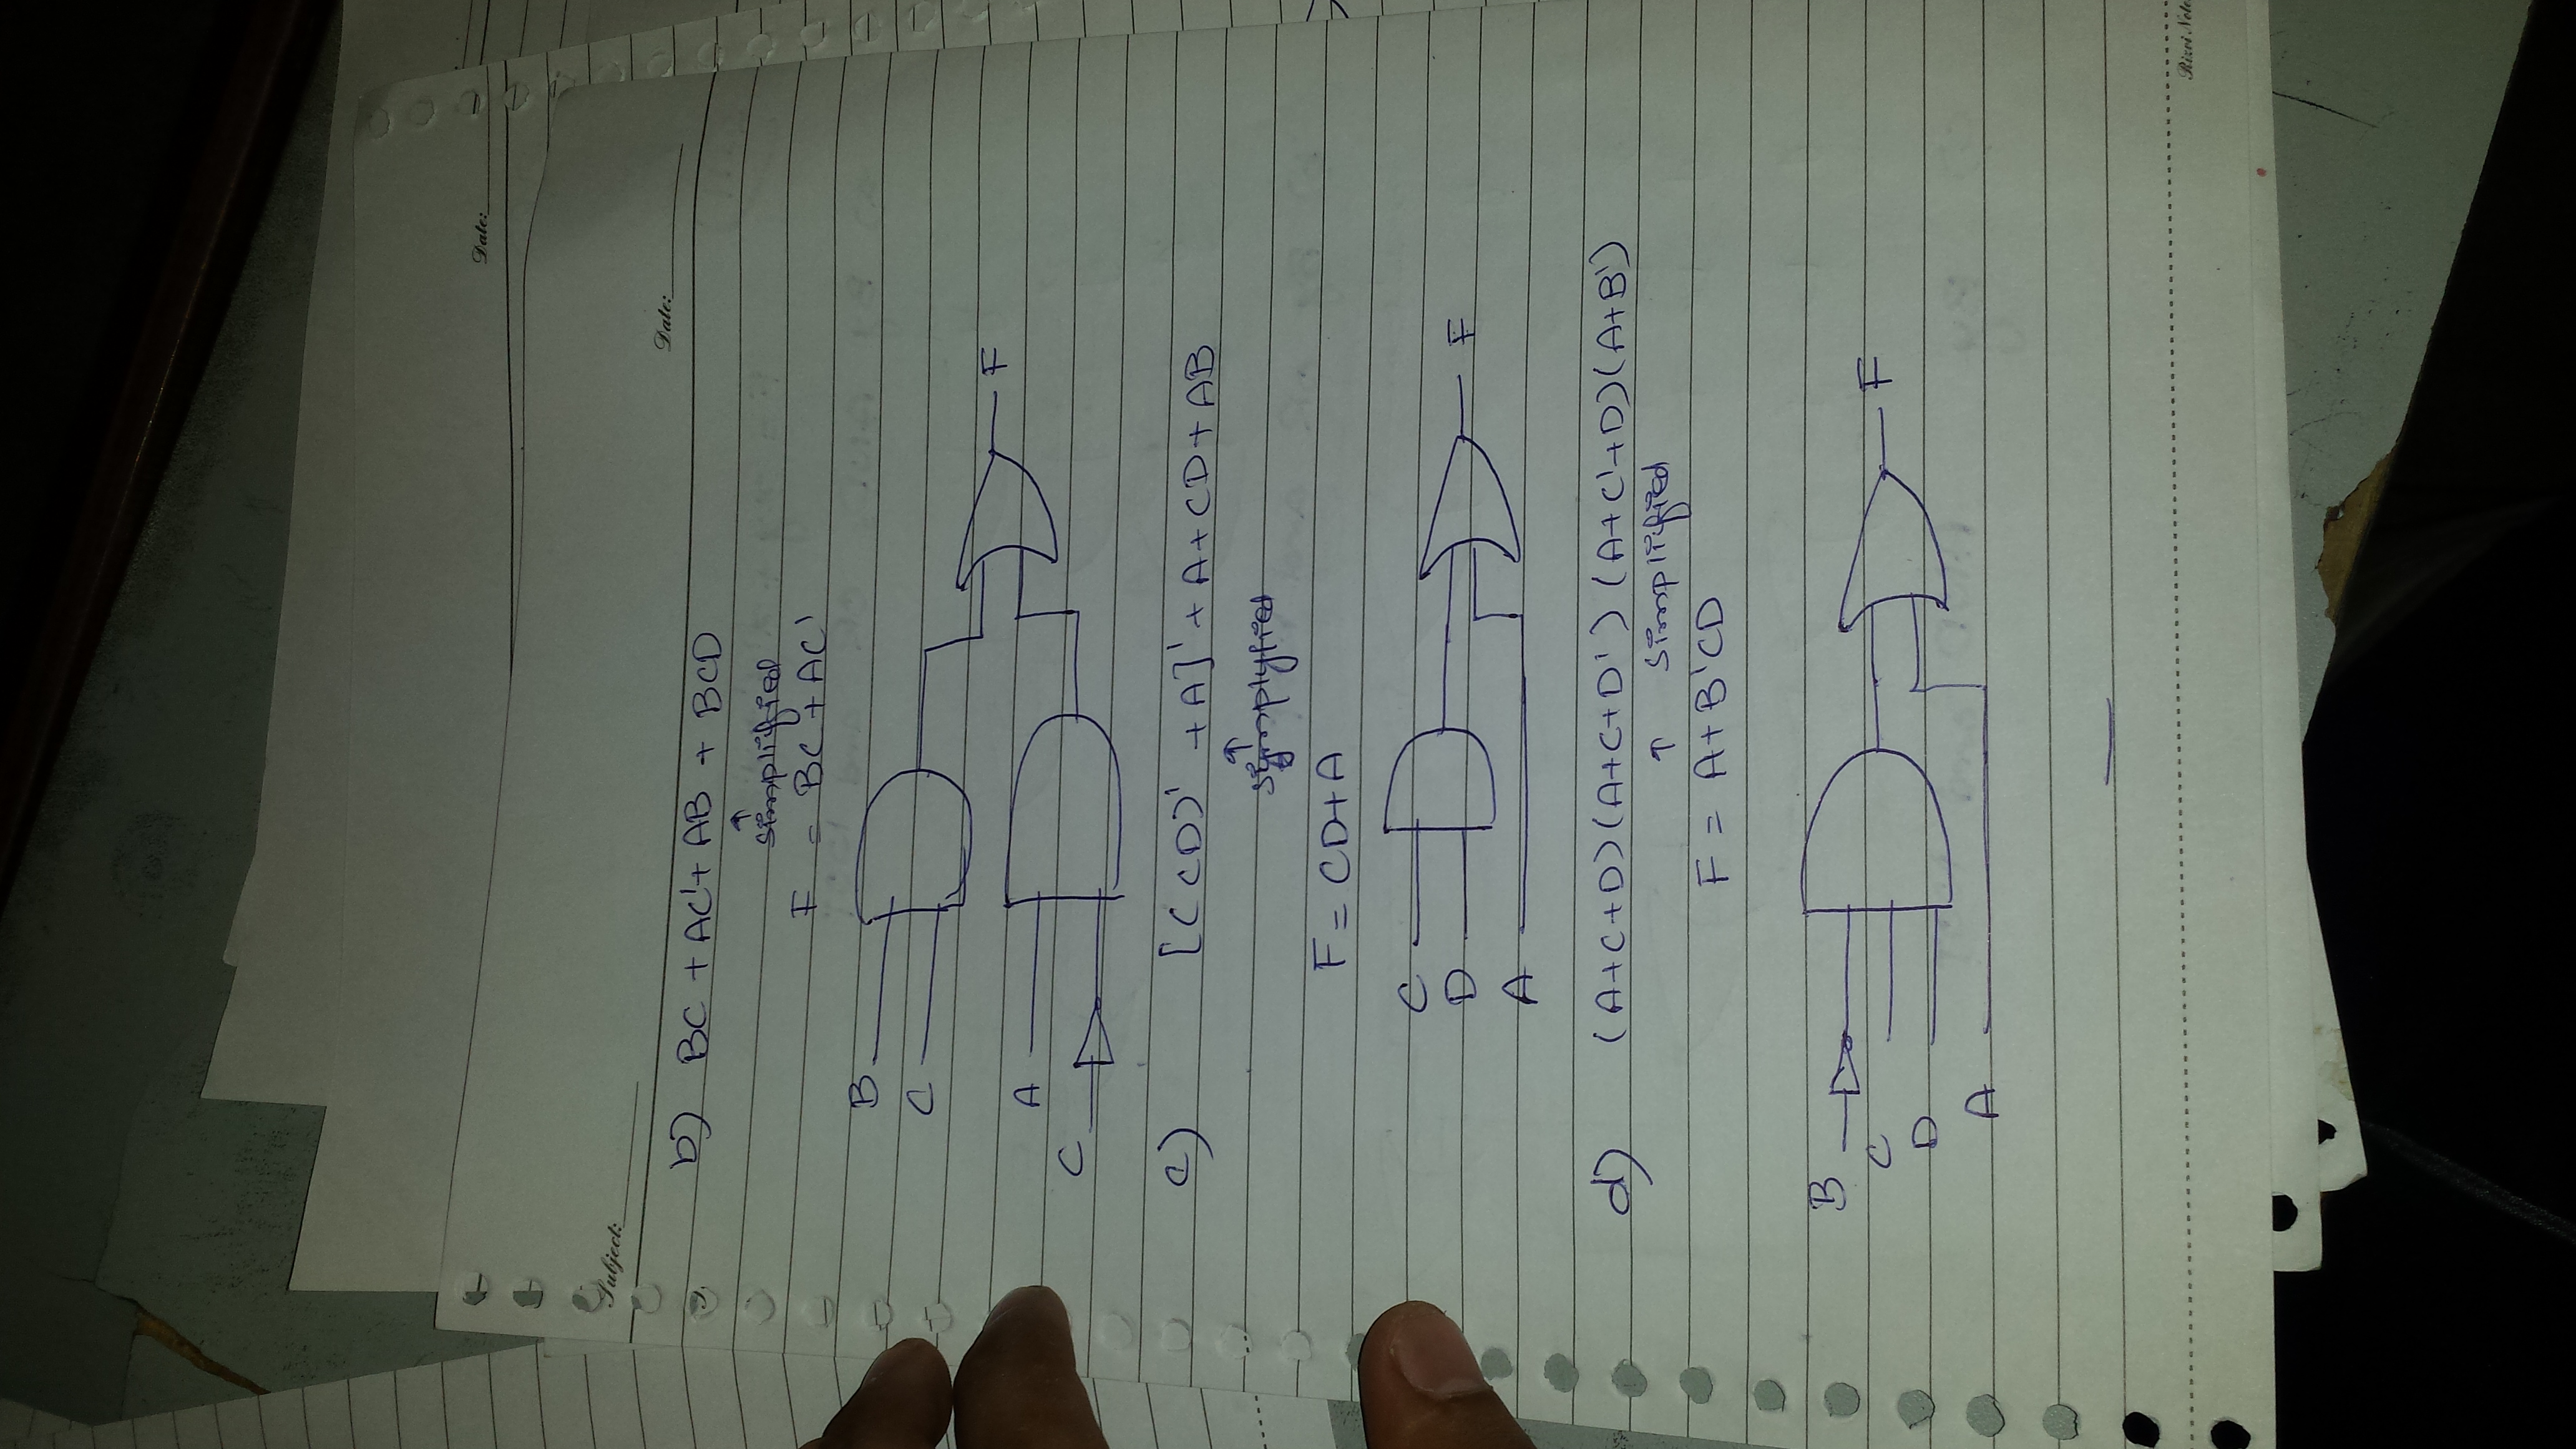 Date:
Subject:
Date:
b) BC + AC' + AB + BCD
↑
simplified
F = BC + AC'
B
C
A
C
F
c) [(CD)' + A]' + A + CD + AB
↑
simplified
F = CD + A
C
D
A
F
d) (A+C+D)(A+C+D')(A+C'+D)(A+B')
↑ simplified
F = A+B'CD
B
C
D
A
F